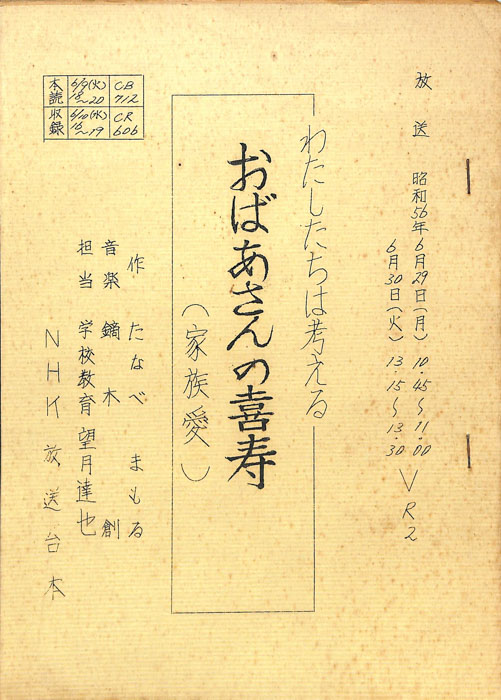 放送 昭和56年6月29日(月) 10.45〜11.00
6月30日(火) 13.15〜13.30
R2
わたしたちは考える
おばあさんの喜寿
(家族愛)
作 たなべ まもる
音楽 鏑木 創
担当 学校教育 望月達也
NHK放送台本
本読 6/9(火) 18〜20 CB712
収録 6/10(水) 16〜19 CR606